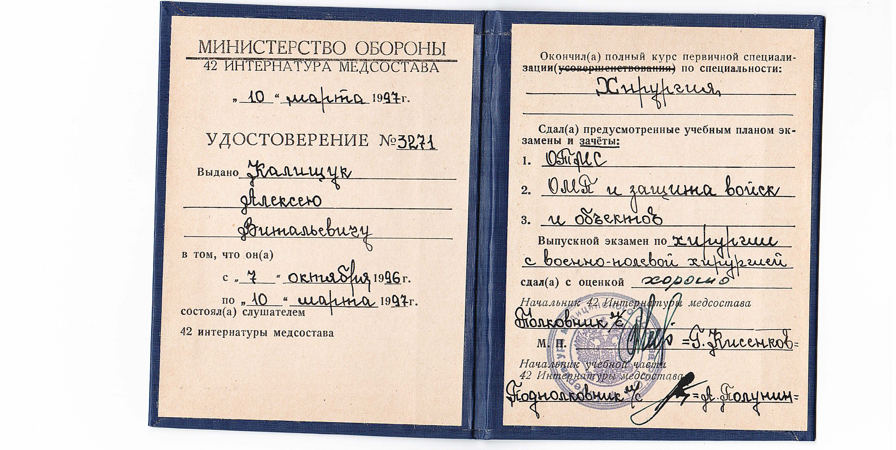 МИНИСТЕРСТВО ОБОРОНЫ
42 ИНТЕРНАТУРА МЕДСОСТАВА
„ 10 “ марта 1997г.
УДОСТОВЕРЕНИЕ № 3271
Выдано Калищук
Алексею
Витальевичу
в том, что он(а)
с „ 7 “ октября 1996г.
по „ 10 “ марта 1997г.
состоял(а) слушателем
42 интернатуры медсостава
Окончил(а) полный курс первичной специали-
зации(усовершенствования) по специальности:
Хирургия
Сдал(а) предусмотренные учебным планом эк-
замены и зачёты:
1. ОТМС
2. ОМП и защита войск
3. и объектов
Выпускной экзамен по хирургии
с военно-полевой хирургией
сдал(а) с оценкой хорошо
Начальник 42 Интернатуры медсостава
Полковник м/с
М. П. =Г. Кисенков=
Начальник учебной части
42 Интернатуры медсостава
Подполковник м/с =А. Полунин=